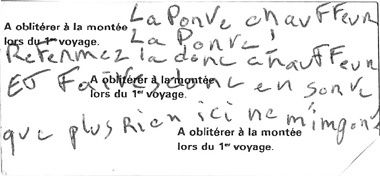 La Ponve chauffeur
A oblitérer à la montée
lors du 1er voyage.
La Ponve!
Refermez la donc chauffeur
A oblitérer à la montée
lors du 1er voyage.
ET Faites donc en sorte
que plus Rien ici ne m'importe
A oblitérer à la montée
lors du 1er voyage.